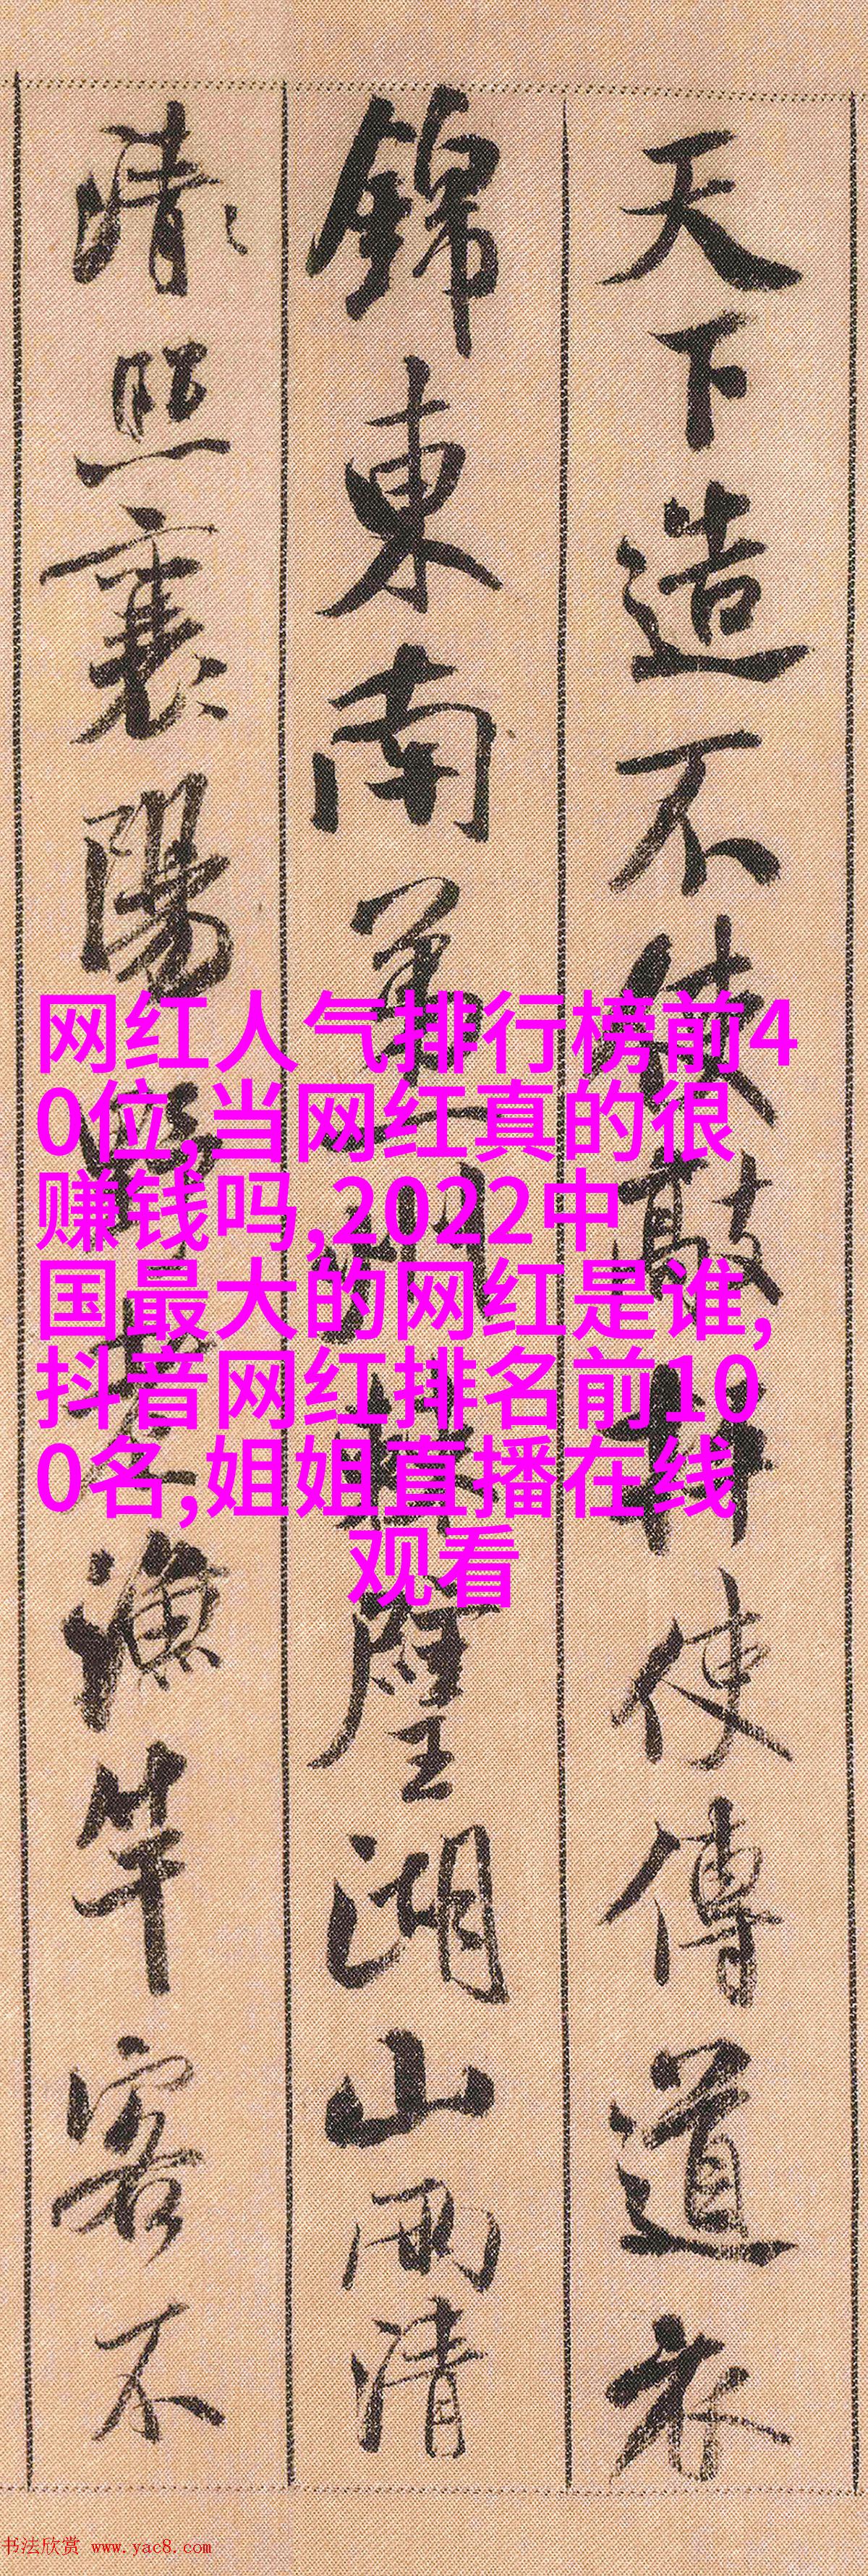 天下造不使敲枰使傳道衣
錦東南第一州棘璧湖山兩清
清照襄陽野老漁竿客不
网红人气排行榜前4
0位,当网红真的很
赚钱吗,2022中
国最大的网红是谁,
抖音网红排名前10
0名,姐姐直播在线
观看
书法欣赏 www.yac8.com